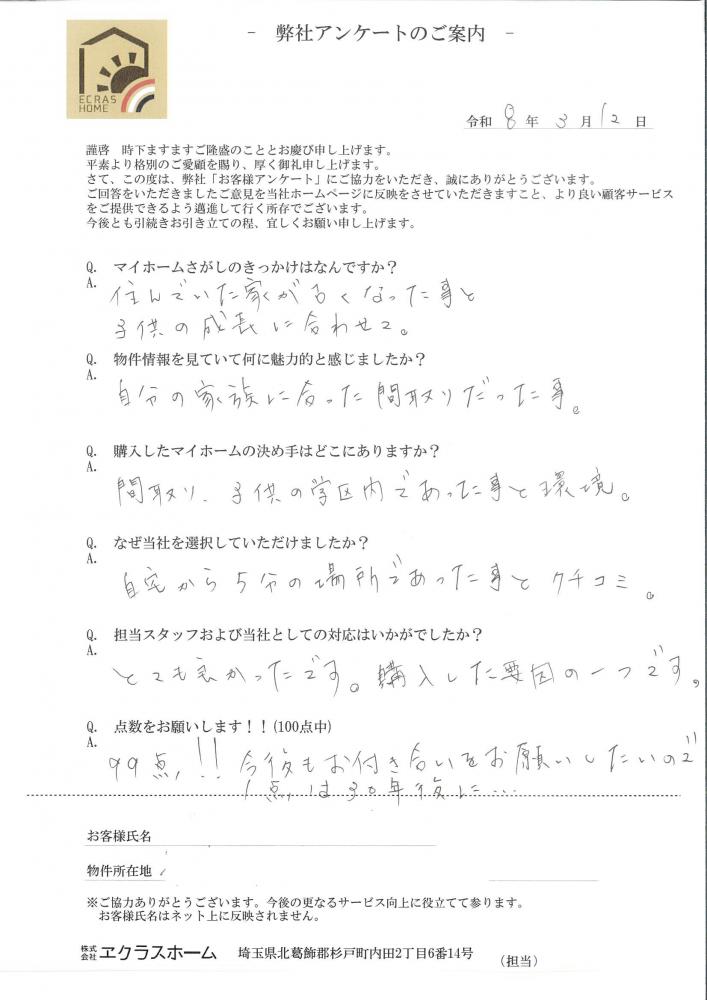 - 弊社アンケートのご案内 -
ECRAS
HOME
令和 8 年 3 月 12 日
謹啓 時下ますますご隆盛のこととお慶び申し上げます。
平素より格別のご愛顧を賜り、厚く御礼申し上げます。
さて、この度は、弊社「お客様アンケート」にご協力をいただき、誠にありがとうございます。
ご回答をいただきましたご意見を当社ホームページに反映をさせていただきますこと、より良い顧客サービス
をご提供できるよう邁進して行く所存でございます。
今後とも引続きお引き立ての程、宜しくお願い申し上げます。
Q. マイホームさがしのきっかけはなんですか？
A. 住んでいた家が古くなった事と
子供の成長に合わせて。
Q. 物件情報を見ていて何に魅力的と感じましたか？
A. 自分の家族に合った間取りだった事。
Q. 購入したマイホームの決め手はどこにありますか？
A. 間取り、子供の学区内であった事と環境。
Q. なぜ当社を選択していただけましたか？
A. 自宅から5分の場所であった事とクチコミ。
Q. 担当スタッフおよび当社としての対応はいかがでしたか？
A. とても良かったです。購入した要因の一つです。
Q. 点数をお願いします！！(100点中)
A. 99点!! 今後もお付き合いをお願いしたいので
1点は30年後に…
お客様氏名
物件所在地
※ご協力ありがとうございます。今後の更なるサービス向上に役立てて参ります。
お客様氏名はネット上に反映されません。
株式会社 ヱクラスホーム 埼玉県北葛飾郡杉戸町内田2丁目6番14号 （担当）